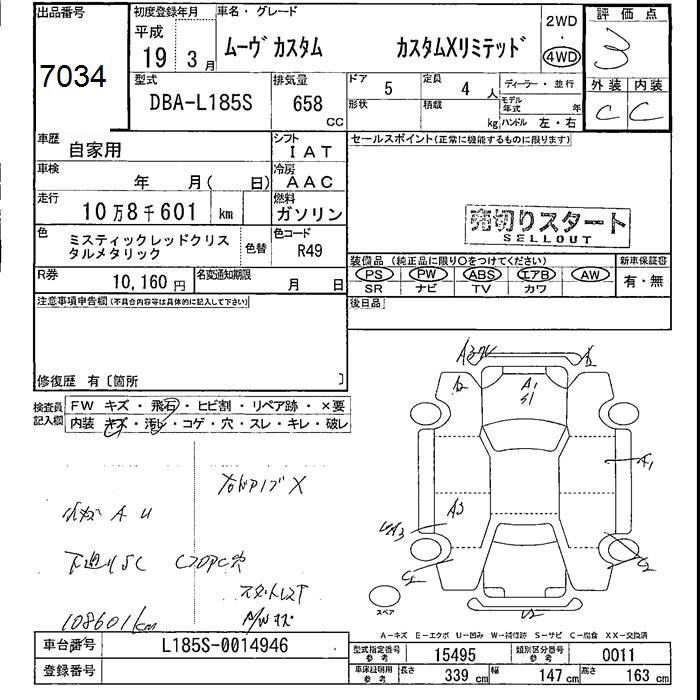 出品番号
7034
初度登録年月
平成
19年3月
車名・グレード
ムーヴ カスタム カスタムXリミテッド
2WD
・
4WD
評価点
3
型式
DBA-L185S
排気量
658
CC
ドア 5
定員 4人
形状
積載 kg
ディーラー・並行
モデル年式 年
ハンドル 左・右
外装 内装
C C
車歴 自家用
シフト IAT
セールスポイント(正常に機能するものに限ります)
車検 年 月( 日)
冷房 AAC
走行 10万8千601 km
燃料 ガソリン
売切りスタート
SELLOUT
色 ミスティックレッドクリス
タルメタリック
色替
色コード R49
装備品 (純正品に限り○をつけてください)
新車保証書
PS PW ABS エアB AW
有・無
SR ナビ TV カワ
R券 10,160円
名変通知期限 月 日
後日品
注意事項申告欄(不具合内容等は具体的に記入して下さい)
修復歴 有〔箇所 〕
検査員記入欄
FW キズ・飛石・ヒビ割・リペア跡・×要
内装 キズ・汚レ・コゲ・穴・スレ・キレ・破レ
A U
下廻りSC
108601km
A2
A1
S1
A1
A3
A3
C2
C2
U2
スペア
A-キズ E-エクボ U-凹み W-補修跡 S-サビ C-腐食 XX-交換済
車台番号 L185S-0014946
登録番号
型式指定番号参考 15495
類別区分番号参考 0011
車庫証明用参考 長さ 339 cm 幅 147 cm 高さ 163 cm